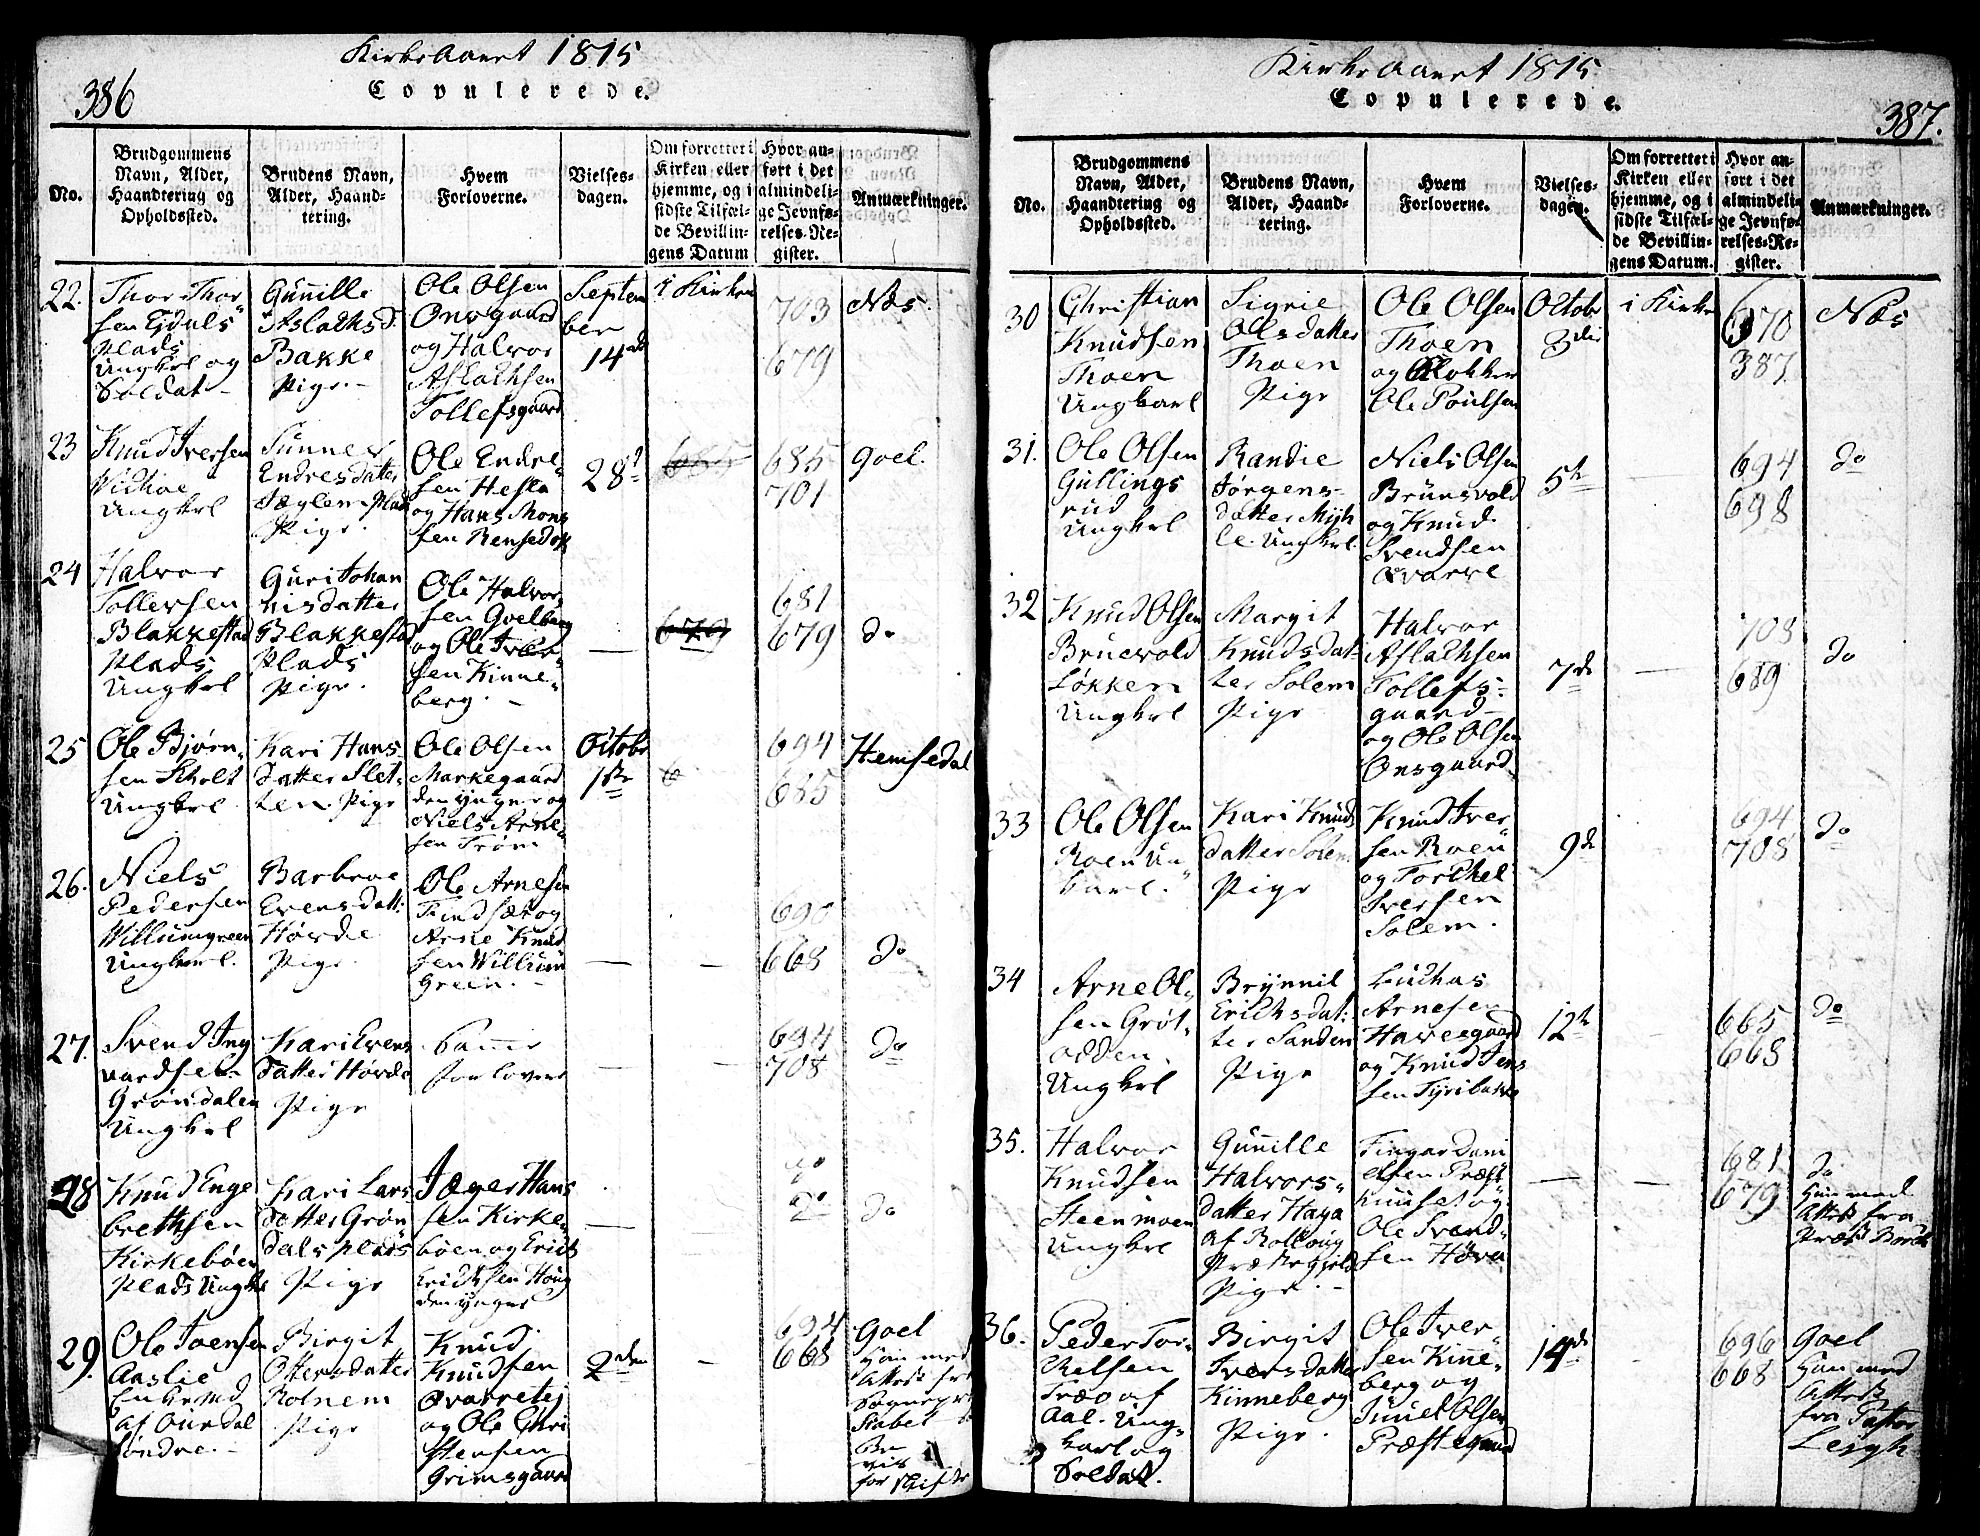 Kirke Aaret 1815
386
Copulerede.
No.
Brudgommens
Navn, Alder,
Haandtering og
Opholdssted.
Brudens Navn,
Alder, Haand-
tering.
Hvem
Forloverne.
Vielses-
dagen.
Om forrettet i
Kirken eller
hjemme, og i
sidste Tilfæl-
de Bevillin-
gens Datum
Hvor an-
ført i det
almindeli-
ge Jevnfø-
relses-Re-
gister.
Anmærkninger.
22.
Thor Thor-
sen Ejdals
Plads
Ungkrl og
Soldat
Gunille
Aslachsd.
Bakke
Pige.
Ole Olsen
Onsgaard
og Halvor
Aslachsen
Tollefsgaard
Septem
ber
14de
i Kirken
703
679
Næs.
23
Knud Iversen
Vidhoe
Ungkrl
Sunnev
Endresdatter
Pige.
Ole Endre-
sen Hesla
og Hans Mons
sen Rensedok
28d
685
685
701
Goel.
24
Halvor
Tollevsen
Blakkestad
Plads
Ungkrl
Guri Johan
nisdatter
Blakkestad
Plads
Pige.
Ole Halvor-
sen Goelberg
og Ole Iver-
sen Kinne-
berg.
679
681
679
do
25
Ole Bjørn-
sen Skolt
Ungkrl
Kari Hans
datter Slet-
ten. Pige
Ole Olsen
Markegaard
den yngre og
Niels Arne-
sen Trøm
Octobr
1ste
694
685
Hemsedal
26.
Niels
Pedersen
Willumgreen
Ungkarl.
Barbroe
Evensdatt:
Hørde
Pige.
Ole Arnesen
Findsæt og
Arne Knud
sen Willum
Green.
690
668
do
27.
Svend Ing
vardsen
Grøndalen
Ungkrl
Kari Evens
datter Hørde
Pige
Samme
Forlovere
694
708
do
28
Knud Enge
brethsen
Kirkebøen
Plads Ungkr
Kari Lars
datter Grøn
dals plads
Pige
Jæger Hans
sen Kirke-
bøen og Erich
Erichsen Houg
den yngre
do
do
do
29.
Ole Toensen
Aaslie
Enkemd
af Ourdal
Søndre.
Birgit
Ottersdatter
Rotnem
Pige
Knud
Knudsen
Qvarretej
og Ole Chri
stensen
Grimsgaard
2den
694
668
Goel
Han med
Attest fra
Sognepr
Stabel
for skifte
Kirke Aaret 1815.
Copulerede.
387.
No.
Brudgommens
Navn, Alder,
Haandtering og
Opholdssted.
Brudens Navn,
Alder, Haand-
tering.
Hvem
Forloverne.
Vielses-
dagen.
Om forrettet i
Kirken eller
hjemme, og i
sidste Tilfæl-
de Bevillin-
gens Datum.
Hvor an-
ført i det
almindeli-
ge Jevnfø-
relses-Re-
gister.
Anmærkninger.
30
Christian
Knudsen
Thoen
Ungkarl
Sigrie
Olsdatter
Thoen
Pige
Ole Olsen
Thoen
og Klokker
Ole Poulsen
Octobr
3die
i Kirke
670
387
Næs
31.
Ole Olsen
Gullings
rud
Ungkrl
Randie
Jørgens-
datter Myh
le. Ungkrl
Niels Olsen
Brunsvold
og Knud
Svendsen
Qvarve
5te
694
698
do
32
Knud Olsen
Bruevold
Løkken
Ungkrl
Margit
Knudsdat-
ter Solem
Pige
Halvor
Aslachsen
Tollefs-
gaard
og Ole Olsen
Onsgaard
7de
708
689
do
33
Ole Olsen
Roen Un
karl.
Kari Knuds
datter Solem
Pige
Knud Iver
sen Roen
og Torchel
Iversen
Solem.
9de
694
708
do
34
Arne Ol-
sen Grøt-
odden.
Ungkrl
Brynnil
Erichsdat:
ter Sanden
Pige
Luchas
Arnesen
Haveegaard
og Knud Jens
sen Tyribakke
12te
665
668
do
35.
Halvor
Knudsen
Steenmoen
Ungkrl
Gunille
Halvors-
datter Haga
af Rolloug
Præstegjeld
Pige.
Fingar Dani
elsen Præst
og
Ole Svend-
sen Hove
681
679
do
Hun med
Attest fra
Præst
36.
Peder Tor-
kelsen
Træo af
Aal. Ung-
karl og
Soldat.
Birgit
Iversdatter
Kinneberg
Pige.
Ole Iver-
sen Kinne-
berg og
Olsen
Præstegaard
14de
696
668
Goel
Han med
Attest
fra Pastor
Leigh